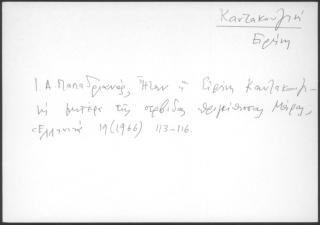 Καντακουζηνή
Ειρήνη
Ι.Α. Παπαδριανός, Ἦταν ἡ Εἰρήνη Καντακουζη-
νή μητέρα τῆς σερβίδας πριγκίπισσας Μάρας,
Ἑλληνικά 19 (1966) 113-116.